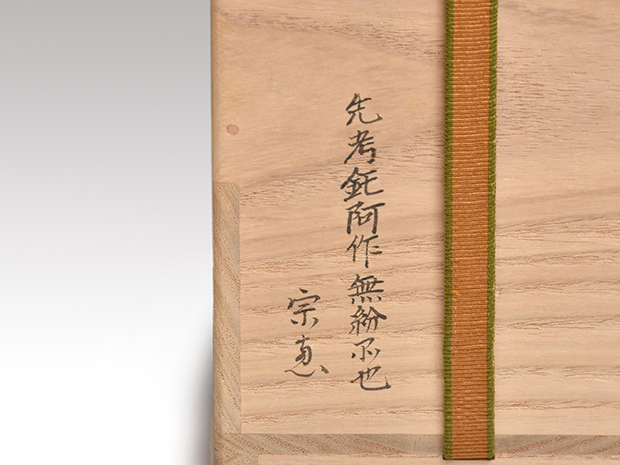 先考鈍阿作無紛品也
宗恵